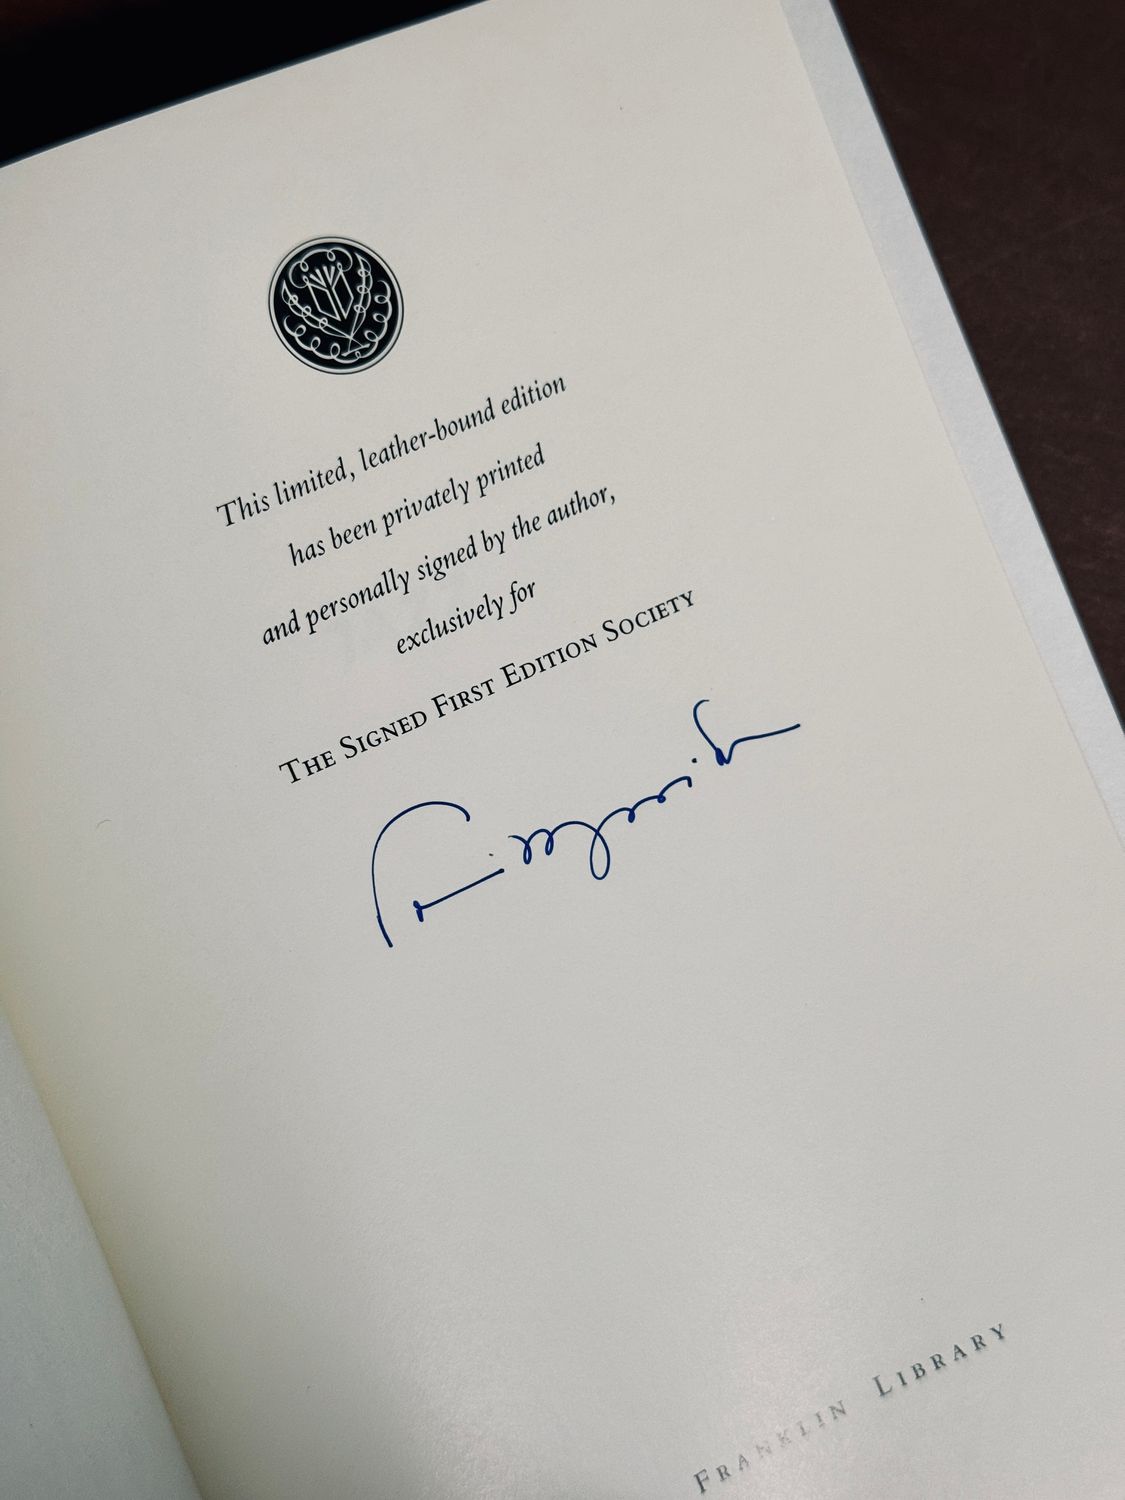 This limited, leather-bound edition
has been privately printed
and personally signed by the author,
exclusively for
THE SIGNED FIRST EDITION SOCIETY
FRANKLIN LIBRARY